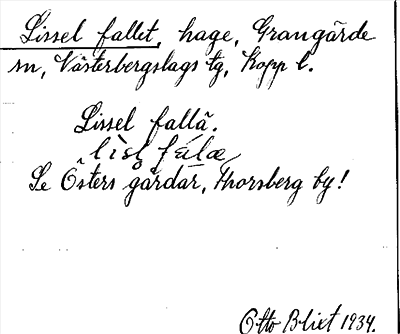 Lissel fallet, hage, Grangärde
sn, Västerbergslags tg, Kopp l.
Lissel fallä.
lìsl fálæ
Se Östers gårdar, Thorsberg by!
Otto Blixt 1934.